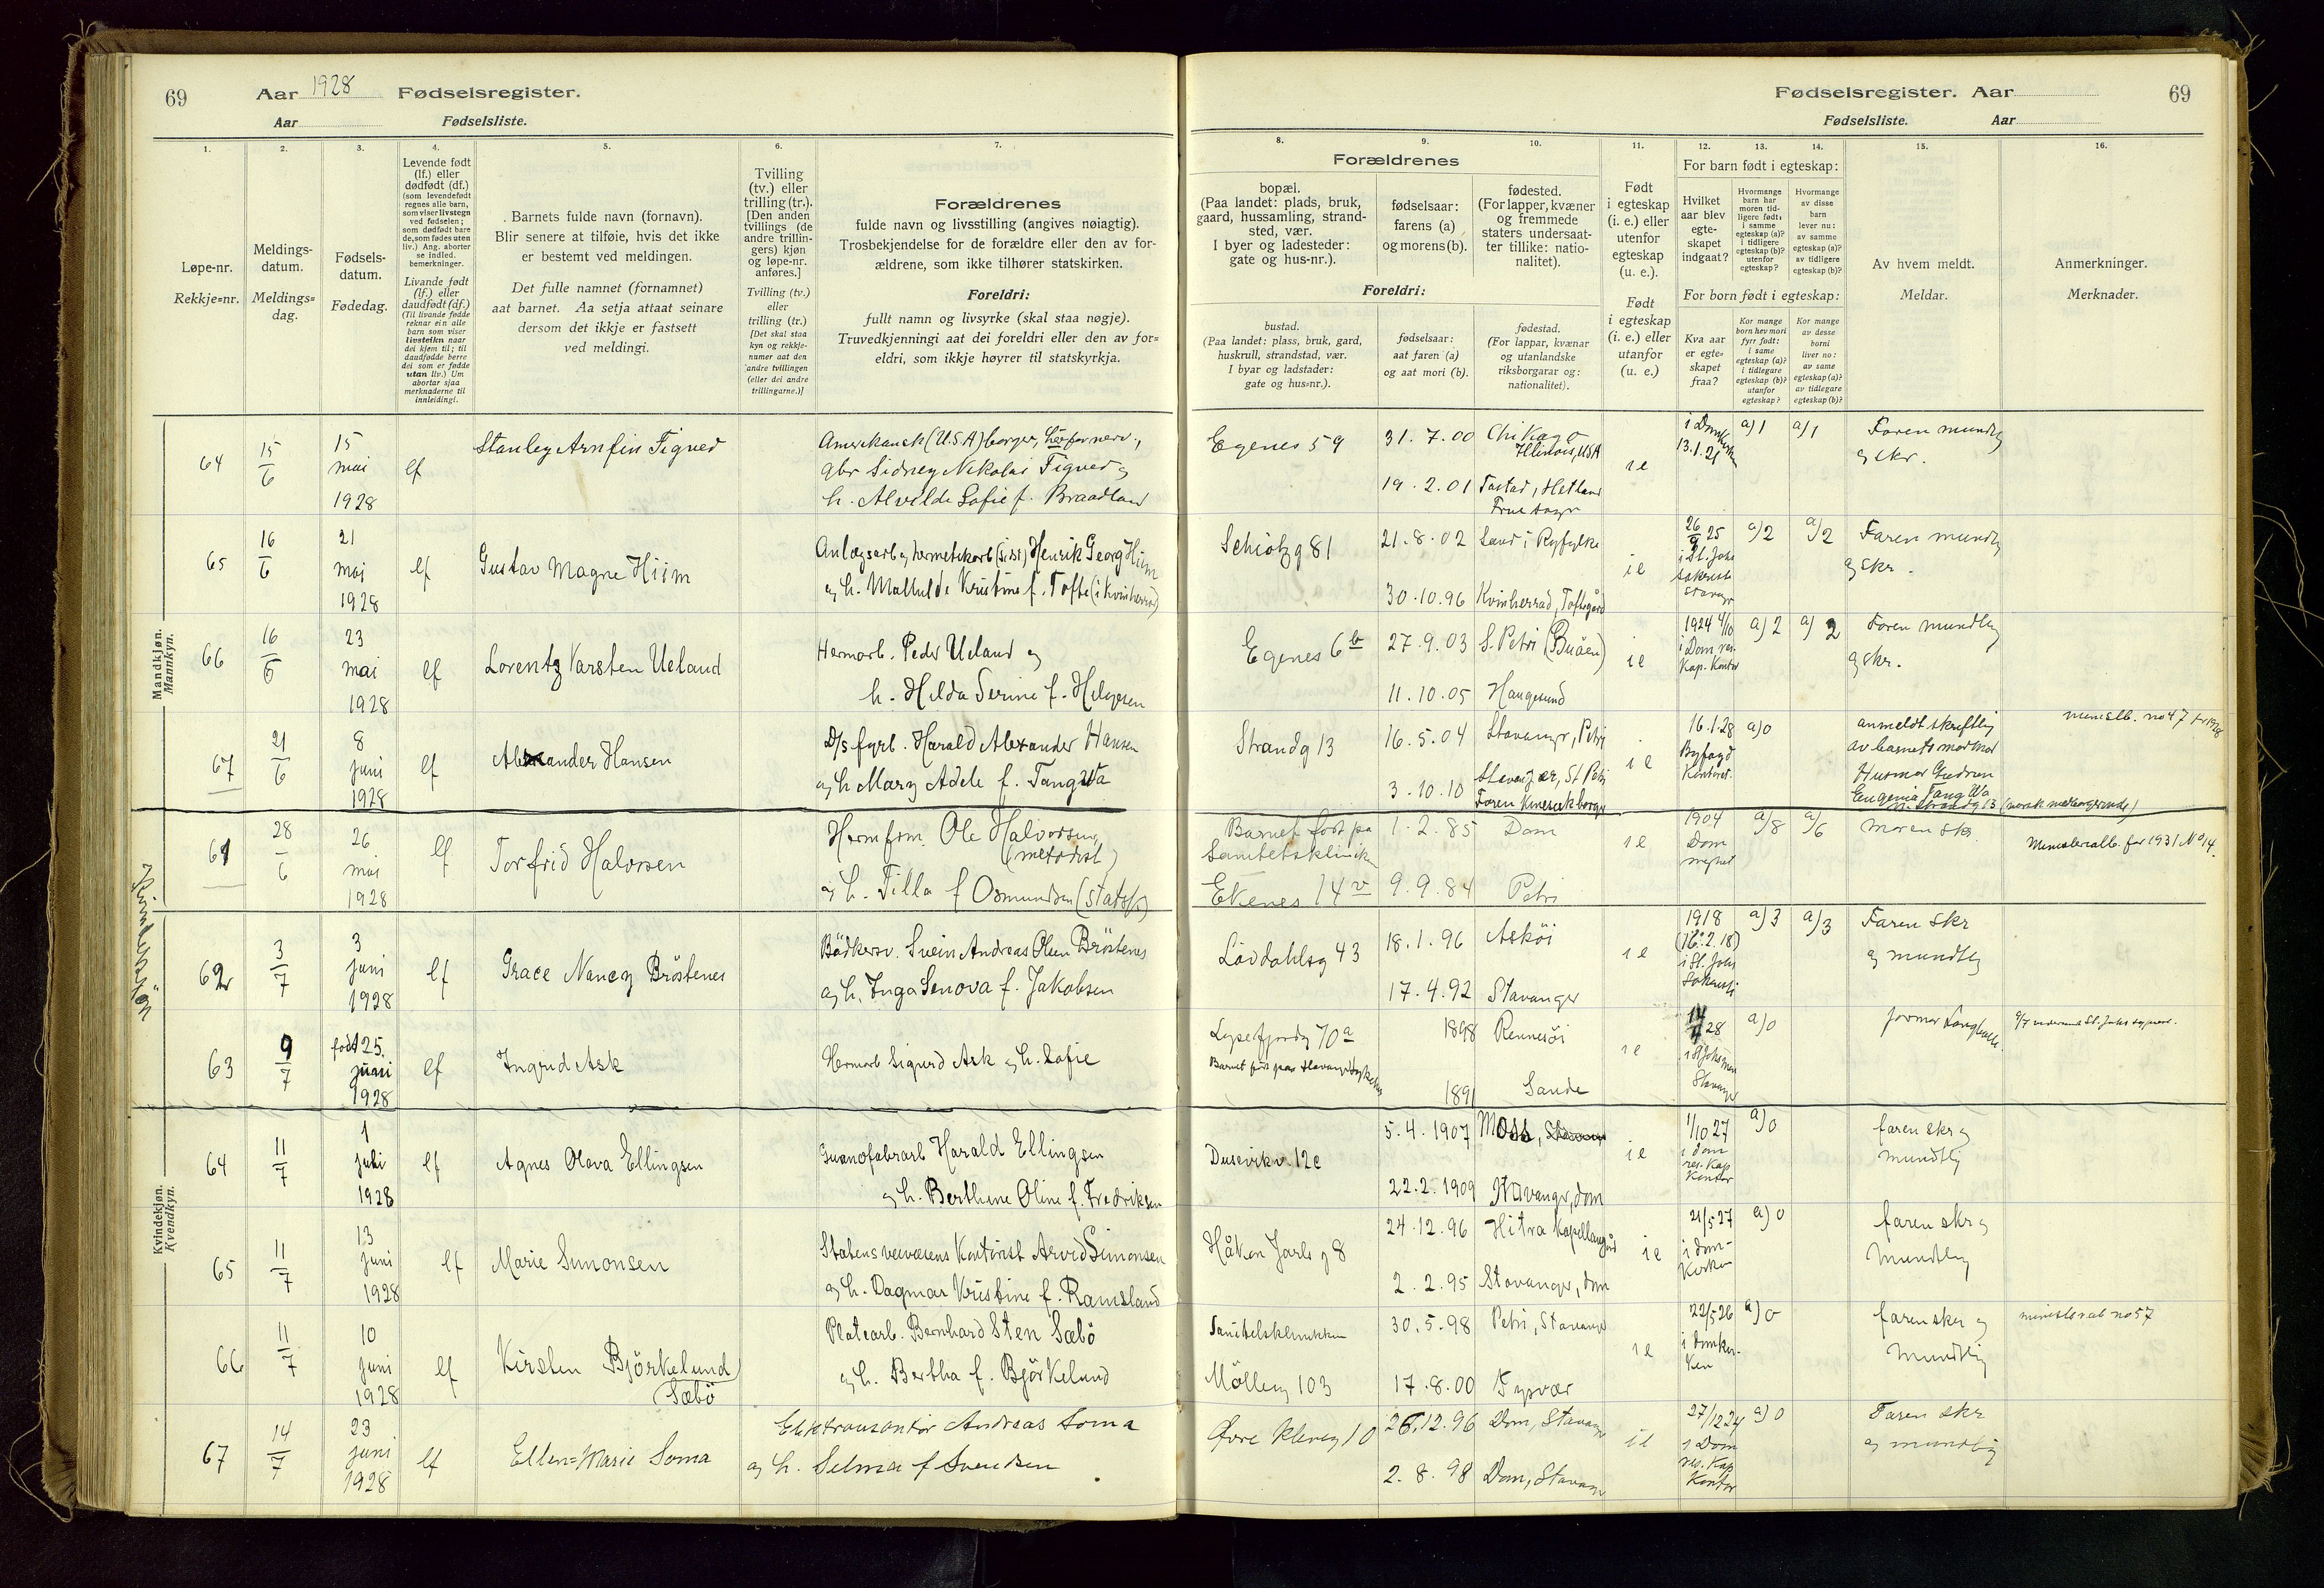 69
Aar 1928 Fødselsregister.
Aar Fødselsliste.
Fødselsregister. Aar
69
Fødselsliste. Aar
1.
Løpe-nr.
Rekkje=nr.
2.
Meldings-
datum.
Meldings=
dag.
3.
Fødsels-
datum.
Fødedag.
4.
Levende født
(lf.) eller
dødfødt (df.)
(som levendefødt
regnes alle barn,
som viser livstegn
ved fødselen;
som dødfødt bare
de, som fødes uten
liv.) Ang. aborter
se indled.
bemerkninger.
Livande født
(lf.) eller
daudfødt (df.)
(Til livande fødde
reknar ein alle
barn som viser
livsteikn naar
dei kjem til; til
daudfødde berre
dei som er fødde
utan liv.) Um
abortar sjaa
merknaderne til
innleidingi.
5.
Barnets fulde navn (fornavn).
Blir senere at tilføie, hvis det ikke
er bestemt ved meldingen.
Det fulle namnet (fornamnet)
aat barnet. Aa setja attaat seinare
dersom det ikkje er fastsett
ved meldingi.
6.
Tvilling
(tv.) eller
trilling (tr.).
[Den anden
tvillings (de
andre trillin-
gers) kjøn
og løpe-nr.
anføres.]
Tvilling (tv.)
eller
trilling (tr.)
[Det skal staa
kyn og rekkje-
numer aat den
andre tvillingen
(eller dei andre
trillingarne.)]
7.
Forældrenes
fulde navn og livsstilling (angives nøiagtig).
Trosbekjendelse for de forældre eller den av for-
ældrene, som ikke tilhører statskirken.
Foreldri:
fullt namn og livsyrke (skal staa nøgje).
Truvedkjenningi aat dei foreldri eller den av for=
eldri, som ikkje høyrer til statskyrkja.
Forældrenes
8.
bopæl.
(Paa landet: plads, bruk,
gaard, hussamling, strand-
sted, vær.
I byer og ladesteder:
gate og hus-nr.).
Foreldri:
bustad.
(Paa landet: plass, bruk, gard,
huskrull, strandstad, vær.
I byar og ladstader:
gate og hus=nr.).
9.
fødselsaar:
farens (a)
og morens (b).
fødselsaar:
aat faren (a)
og aat mori (b).
10.
fødested.
(For lapper, kvæner
og fremmede
staters undersaat-
ter tillike: natio-
nalitet).
fødestad.
(For lappar, kvænar
og utanlandske
riksborgarar og:
nationalitet).
11.
Født
i egteskap
(i. e.) eller
utenfor
egteskap
(u. e.).
Født
i egteskap
(i. e.) eller
utanfor
(u. e.)
For barn født i egteskap:
12.
Hvilket
aar blev
egte-
skapet
indgaat?
For born født i egteskap:
Kva aar
er egte=
skapet
fraa?
13.
Hvormange
barn har
moren tid-
ligere født:
i samme
egteskap (a)?
i tidligere
egteskap (b)?
utenfor
egteskap?
Kor mange
born hev mori
fyrr født:
i same
egteskap (a)?
i tidlegare
egteskap (b)?
utanfor
egteskap?
14.
Hvormange
av disse
barn
lever nu:
av samme
egteskap (a)?
av tidligere
egteskap (b)?
Kor mange
av desse
borni
liver no:
av same
egteskap (a)?
av tidlegare
egteskap (b)?
15.
Av hvem meldt.
Meldar.
16.
Anmerkninger.
Merknader.
Mandkjøn.
Mannkyn.
64 15/6 15 mai 1928 lf Stanley Arnfin Figved
Amerikansk (USA) borger,
gbr Sidney Nikolai Figved og
h. Alvilde Sofie f. Braadland
Egenes 59 31.7.00 Chikago Illinois, USA
19.2.01 Tastad, Hetland
i e 13.1.21 a) 1 a) 1 Faren mundtlig
og skr.
65 16/6 21 mai 1928 lf Gustav Magne Hiim
Henrik Georg Hiim
og h. Mathilde Kristine f. Tofte (i Kvinherred)
Schiøtzg 81 21.8.02 Sand i Ryfylke
30.10.96 Kvinherrad,
i e 26/9 25 i St. Joh. a) 2 a) 2 Faren mundtlig
og skr.
66 16/6 23 mai 1928 lf Lorentz Karsten Ueland
Hermarb. Peder Ueland og
h. Hilda Serine f. Helgesen
Egenes 6b 27.9.03 S. Petri (Buøen)
11.10.05 Haugesund
i e 1924 i Dom res. Kap. Kontor a) 2 a) 2 Faren mundtlig
og skr.
67 21/6 8 juni 1928 lf Alexander Hansen
D/s fyrb. Harald Alexander Hansen
og h Mary Adele f. Tang Wa
Strandg 13 16.5.04 Stavanger, Petri
3.10.10 Stavanger, St Petri
i e 16.1.28 Byfogd Kontoret a) 0
anmeldt skriftlig
av barnets mormor
Husmor Gudrun
Eugenia Tang Wa
Strandg 13
Kvindekjøn
61 28/6 26 mai 1928 lf Torfrid Halvorsen
Ole Halvorsen
(metodist)
og h. Tilla f Osmundsen (statsk)
Barnet født på
Ekenes 14 v 1.2.85 Dom
9.9.84 Petri
i e 1904 Dom a) 8 a) 6 Moren skr.
Ministerialb. for 1931 No 14.
62 3/7 3 juni 1928 lf Grace Nancy Bröstenes
Bødkersv. Svein Andreas Olsen Bröstenes
og h. Inga Senova f. Jakobsen
Løvdahlsg 43 18.1.96 Askøi
17.4.92 Stavanger
i e 1918 (16.2.18) i St. Joh. a) 3 a) 3 Faren skr
og mundtlig
63 9/7 født 25. juni 1928 lf Ingrid Ask
Hermarb Sigurd Ask og h. Sofie
Lysefjordg 70 a
1898 Rennesøi
1891 Sande
i e 28 Stavanger a) 0
Kvindekjøn.
Kvendkyn.
64 11/7 1 juli 1928 lf Agnes Olava Ellingsen
Guanofabrarb Harald Ellingsen
og h. Berthine Oline f. Fredriksen
Dusevikv. 12 e 5.4.1907 Moss,
22.2.1909 Stavanger, dom
i e 1/10 27 i dom res. Kap Kontor a) 0 faren skr og
mundtlig
65 11/7 13 juni 1928 lf Marie Simonsen
Kontorist Arvid Simonsen
og h. Dagmar Kristine f. Ramsland
Håkon Jarls g 8 24.12.96 Hitra
2.2.95 Stavanger, dom
i e 21/5 27 i dom- a) 0 faren skr og
Mundtlig
66 11/7 10 juni 1928 lf Kirsten Björkelund
Sæbö
Platearb. Bernhard Sten Sæbö
og h. Bertha f. Björkelund
Sanitetsklinikken
Mölleg 103 30.5.98 Petri, Stavanger
17.8.00 Tysvær
i e 22/5 26 a) 0 faren skr og
Mundtlig
no 57
67 14/7 23 juni 1928 lf Ellen=Marie Soma
Andreas Soma
og h. Selma f Svendsen
Øvre Kleveg 10 26.12.96 Dom, Stavanger
2.8.98 Dom, Stavanger
i e 27/12 24 i Dom res. Kap Kontor a) 0 Faren skr
og mundtlig